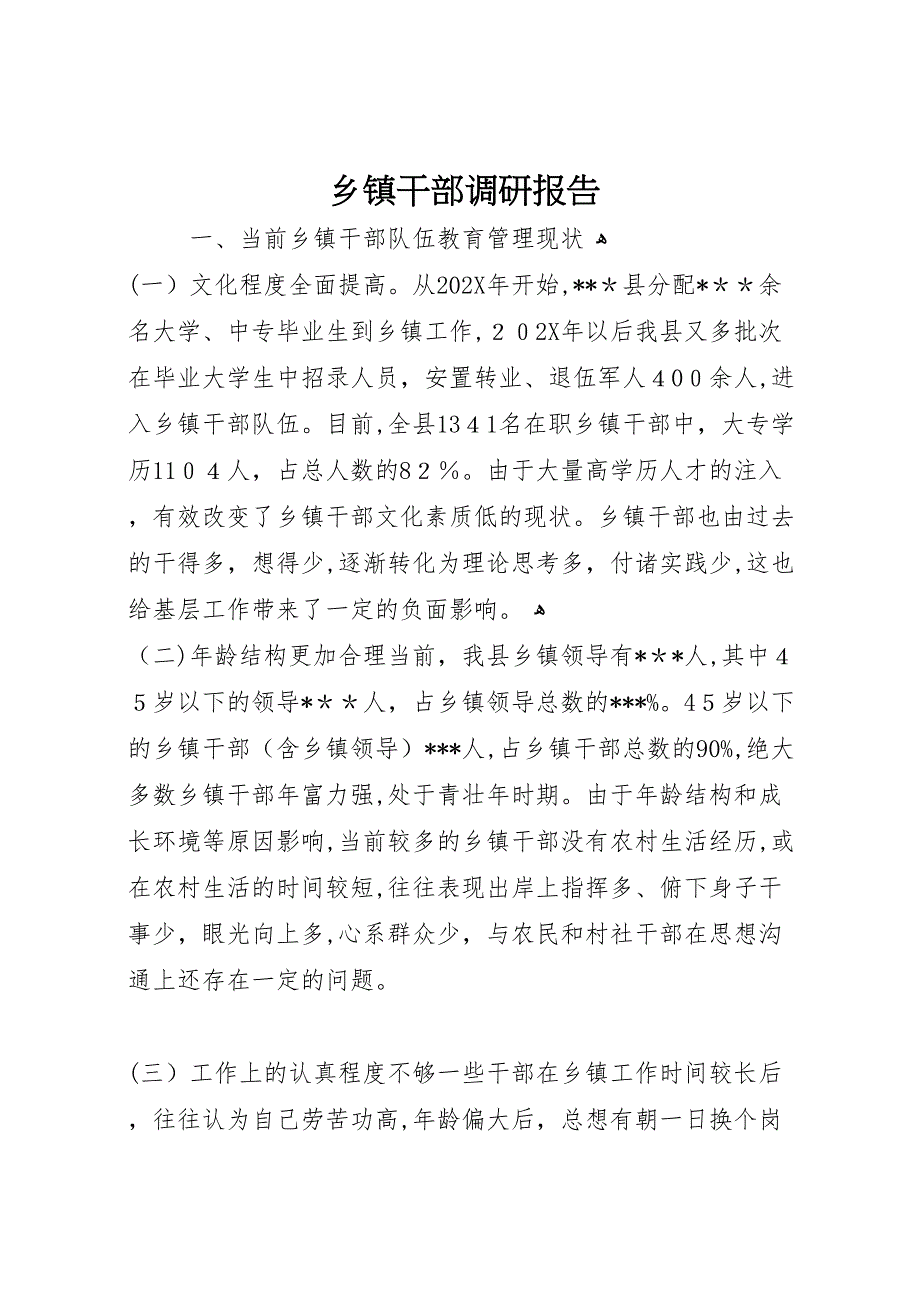 乡镇干部调研报告
一、当前乡镇干部队伍教育管理现状 ﻫ
(一）文化程度全面提高。从202X年开始,**＊县分配*＊＊余
名大学、中专毕业生到乡镇工作,２０2X年以后我县又多批次
在毕业大学生中招录人员，安置转业、退伍军人４００余人,进
入乡镇干部队伍。目前,全县13４1名在职乡镇干部中，大专学
历11０４人，占总人数的8２％。由于大量高学历人才的注入
，有效改变了乡镇干部文化素质低的现状。乡镇干部也由过去
的干得多，想得少,逐渐转化为理论思考多，付诸实践少,这也
给基层工作带来了一定的负面影响。 ﻫ
（二)年龄结构更加合理当前，我县乡镇领导有*＊*人,其中４
５岁以下的领导*＊＊人，占乡镇领导总数的***%。4５岁以下
的乡镇干部（含乡镇领导）***人,占乡镇干部总数的90%,绝大
多数乡镇干部年富力强,处于青壮年时期。由于年龄结构和成
长环境等原因影响,当前较多的乡镇干部没有农村生活经历,或
在农村生活的时间较短,往往表现出岸上指挥多、俯下身子干
事少，眼光向上多,心系群众少，与农民和村社干部在思想沟
通上还存在一定的问题。
(三）工作上的认真程度不够一些干部在乡镇工作时间较长后
，往往认为自己劳苦功高,年龄偏大后，总想有朝一日换个岗